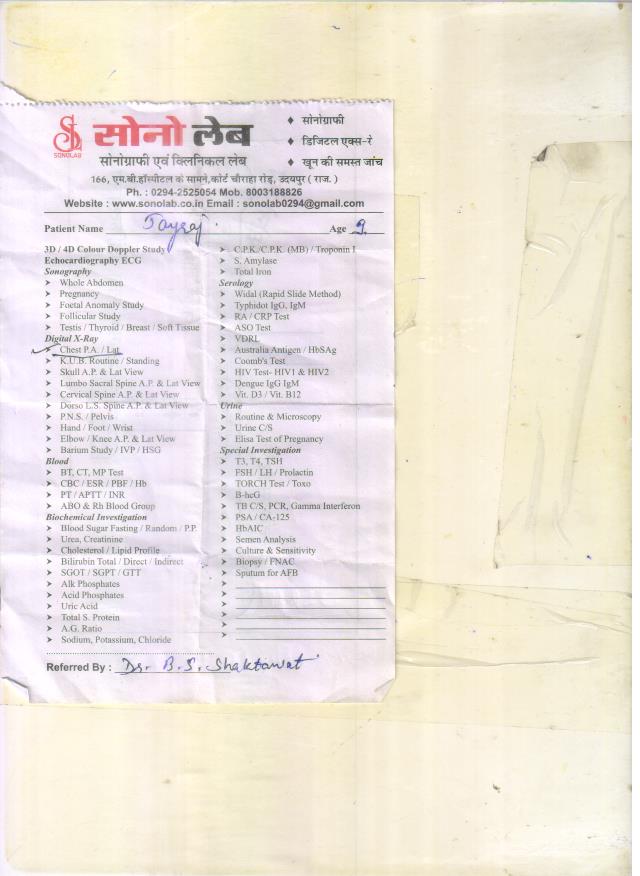 सोनो लेब
SONOLAB
सोनोग्राफी एवं क्लिनिकल लेब
♦ सोनोग्राफी
♦ डिजिटल एक्स-रे
♦ खून की समस्त जांच
166, एम.बी.हॉस्पीटल के सामने,कोर्ट चौराहा रोड़, उदयपुर ( राज. )
Ph. : 0294-2525054 Mob. 8003188826
Website : www.sonolab.co.in Email : sonolab0294@gmail.com
Patient Name Jayraj. Age 9
3D / 4D Colour Doppler Study
Echocardiography ECG
Sonography
➤ Whole Abdomen
➤ Pregnancy
➤ Foetal Anomaly Study
➤ Follicular Study
➤ Testis / Thyroid / Breast / Soft Tissue
Digital X-Ray
➤ Chest P.A. / Lat
➤ K.U.B. Routine / Standing
➤ Skull A.P. & Lat View
➤ Lumbo Sacral Spine A.P. & Lat View
➤ Cervical Spine A.P. & Lat View
➤ Dorso L.S. Spine A.P. & Lat View
➤ P.N.S. / Pelvis
➤ Hand / Foot / Wrist
➤ Elbow / Knee A.P. & Lat View
➤ Barium Study / IVP / HSG
Blood
➤ BT, CT, MP Test
➤ CBC / ESR / PBF / Hb
➤ PT / APTT / INR
➤ ABO & Rh Blood Group
Biochemical Investigation
➤ Blood Sugar Fasting / Random / P.P.
➤ Urea, Creatinine
➤ Cholesterol / Lipid Profile
➤ Bilirubin Total / Direct / Indirect
➤ SGOT / SGPT / GTT
➤ Alk Phosphates
➤ Acid Phosphates
➤ Uric Acid
➤ Total S. Protein
➤ A.G. Ratio
➤ Sodium, Potassium, Chloride
➤ C.P.K./C.P.K. (MB) / Troponin I
➤ S. Amylase
➤ Total Iron
Serology
➤ Widal (Rapid Slide Method)
➤ Typhidot IgG, IgM
➤ RA / CRP Test
➤ ASO Test
➤ VDRL
➤ Australia Antigen / HbSAg
➤ Coomb's Test
➤ HIV Test- HIV1 & HIV2
➤ Dengue IgG IgM
➤ Vit. D3 / Vit. B12
Urine
➤ Routine & Microscopy
➤ Urine C/S
➤ Elisa Test of Pregnancy
Special Investigation
➤ T3, T4, TSH
➤ FSH / LH / Prolactin
➤ TORCH Test / Toxo
➤ B-hcG
➤ TB C/S, PCR, Gamma Interferon
➤ PSA / CA-125
➤ HbAIC
➤ Semen Analysis
➤ Culture & Sensitivity
➤ Biopsy / FNAC
➤ Sputum for AFB
Referred By : Dr. B.S. Shaktawat